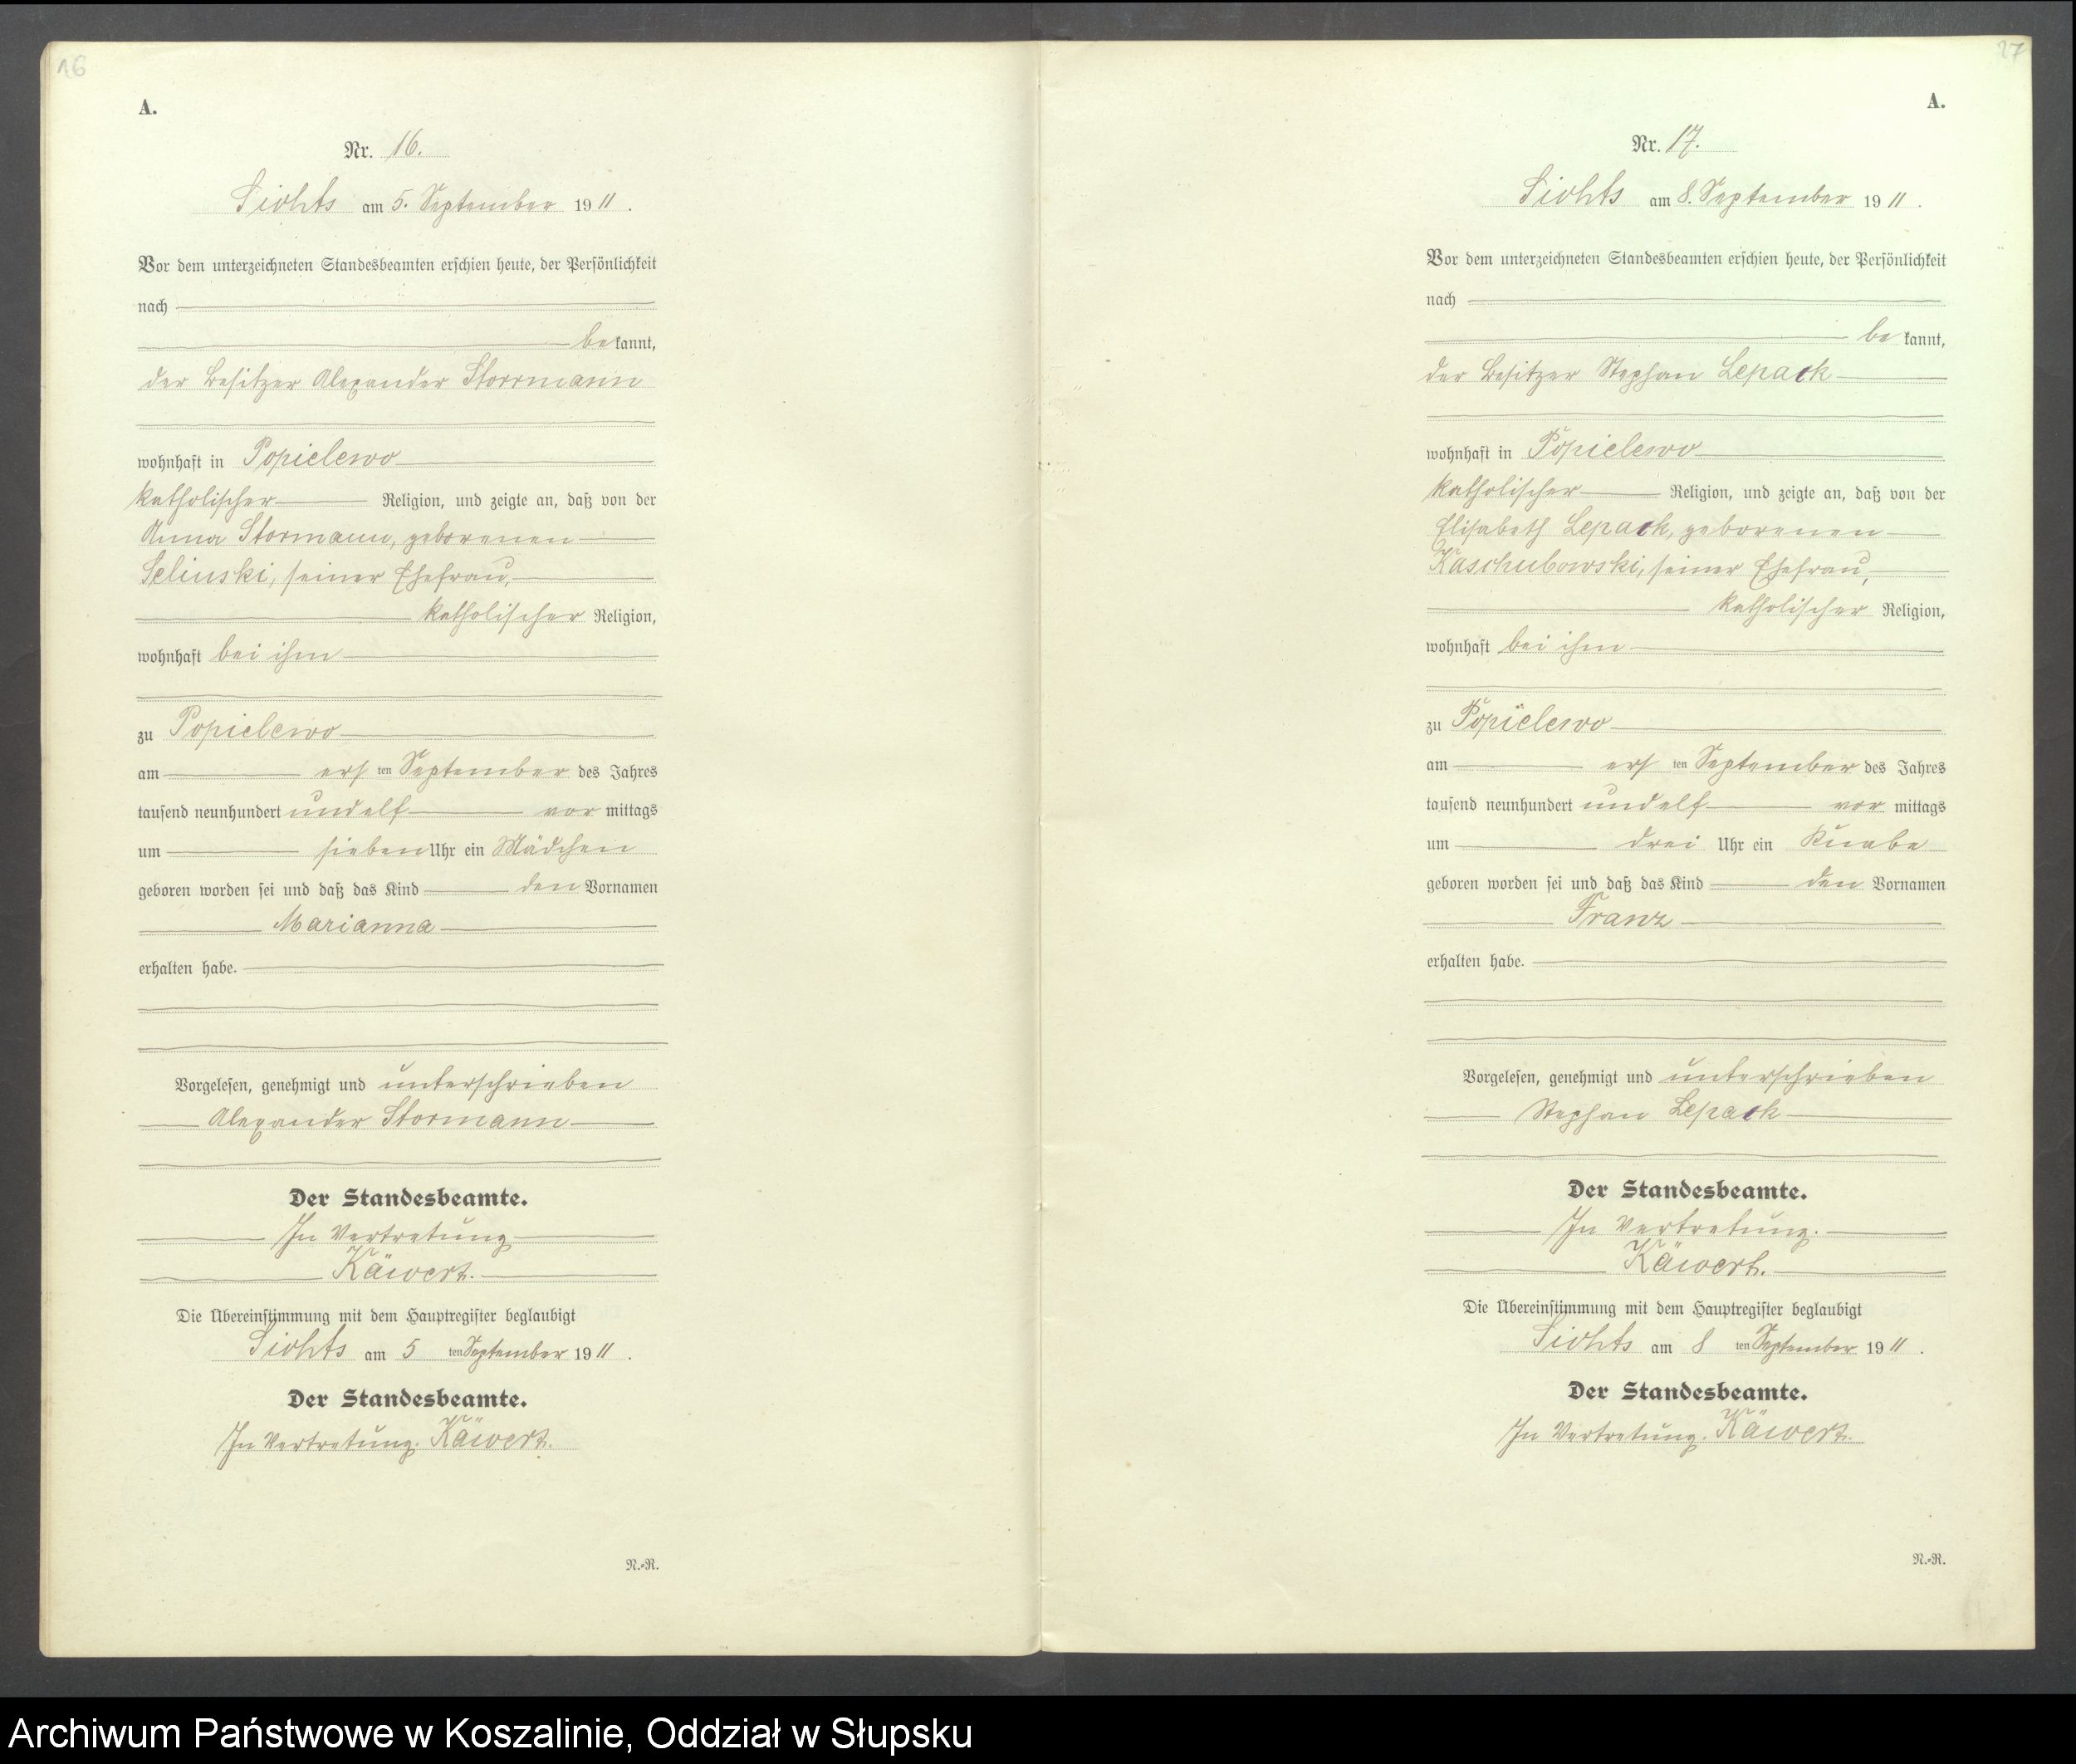 16
A.
Nr. 16.
Siohts am 5. September 1911.
Vor dem unterzeichneten Standesbeamten erschien heute, der Persönlichkeit
nach
bekannt,
der Besitzer Alexander Storrmann
wohnhaft in Popielewo
katholischer Religion, und zeigte an, daß von der
Anna Stormann, geborenen
Selinski, seiner Ehefrau,
katholischer Religion,
wohnhaft bei ihm
zu Popielewo
am ersten September des Jahres
tausend neunhundert und elf vor mittags
um sieben Uhr ein Mädchen
geboren worden sei und daß das Kind den Vornamen
Marianna
erhalten habe.
Vorgelesen, genehmigt und unterschrieben
Alexander Stormann
Der Standesbeamte.
In Vertretung
Käwert.
Die Übereinstimmung mit dem Hauptregister beglaubigt
Siohts am 5 ten September 1911.
Der Standesbeamte.
In Vertretung. Käwert.
N.=R.
A.
Nr. 17.
Siohts am 8. September 1911.
Vor dem unterzeichneten Standesbeamten erschien heute, der Persönlichkeit
nach
bekannt,
der Besitzer Stephan Lepack
wohnhaft in Popielewo
katholischer Religion, und zeigte an, daß von der
Elisabeth Lepack, geborenen
Kaschubowski, seiner Ehefrau,
katholischer Religion,
wohnhaft bei ihm
zu Popielewo
am ersten September des Jahres
tausend neunhundert und elf vor mittags
um drei Uhr ein Knabe
geboren worden sei und daß das Kind den Vornamen
Franz
erhalten habe.
Vorgelesen, genehmigt und unterschrieben
Stephan Lepack
Der Standesbeamte.
In Vertretung.
Käwert.
Die Übereinstimmung mit dem Hauptregister beglaubigt
Siohts am 8 ten September 1911.
Der Standesbeamte.
In Vertretung. Käwert.
N.=R.
Archiwum Państwowe w Koszalinie, Oddział w Słupsku